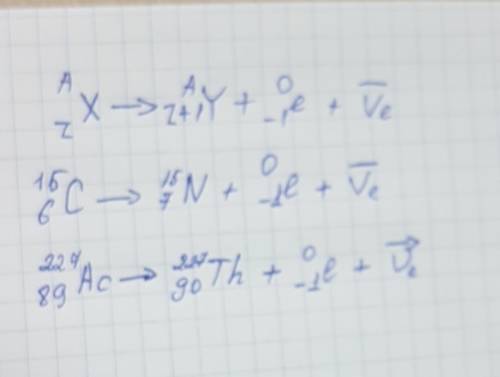 ^A_Z X → ^A_{Z+1} Y + ^0_{-1} e + \overline{ν}_e
^{15}_6 C → ^{15}_7 N + ^0_{-1} e + \overline{ν}_e
^{227}_{89} Ac → ^{227}_{90} Th + ^0_{-1} e + \vec{ν}_e